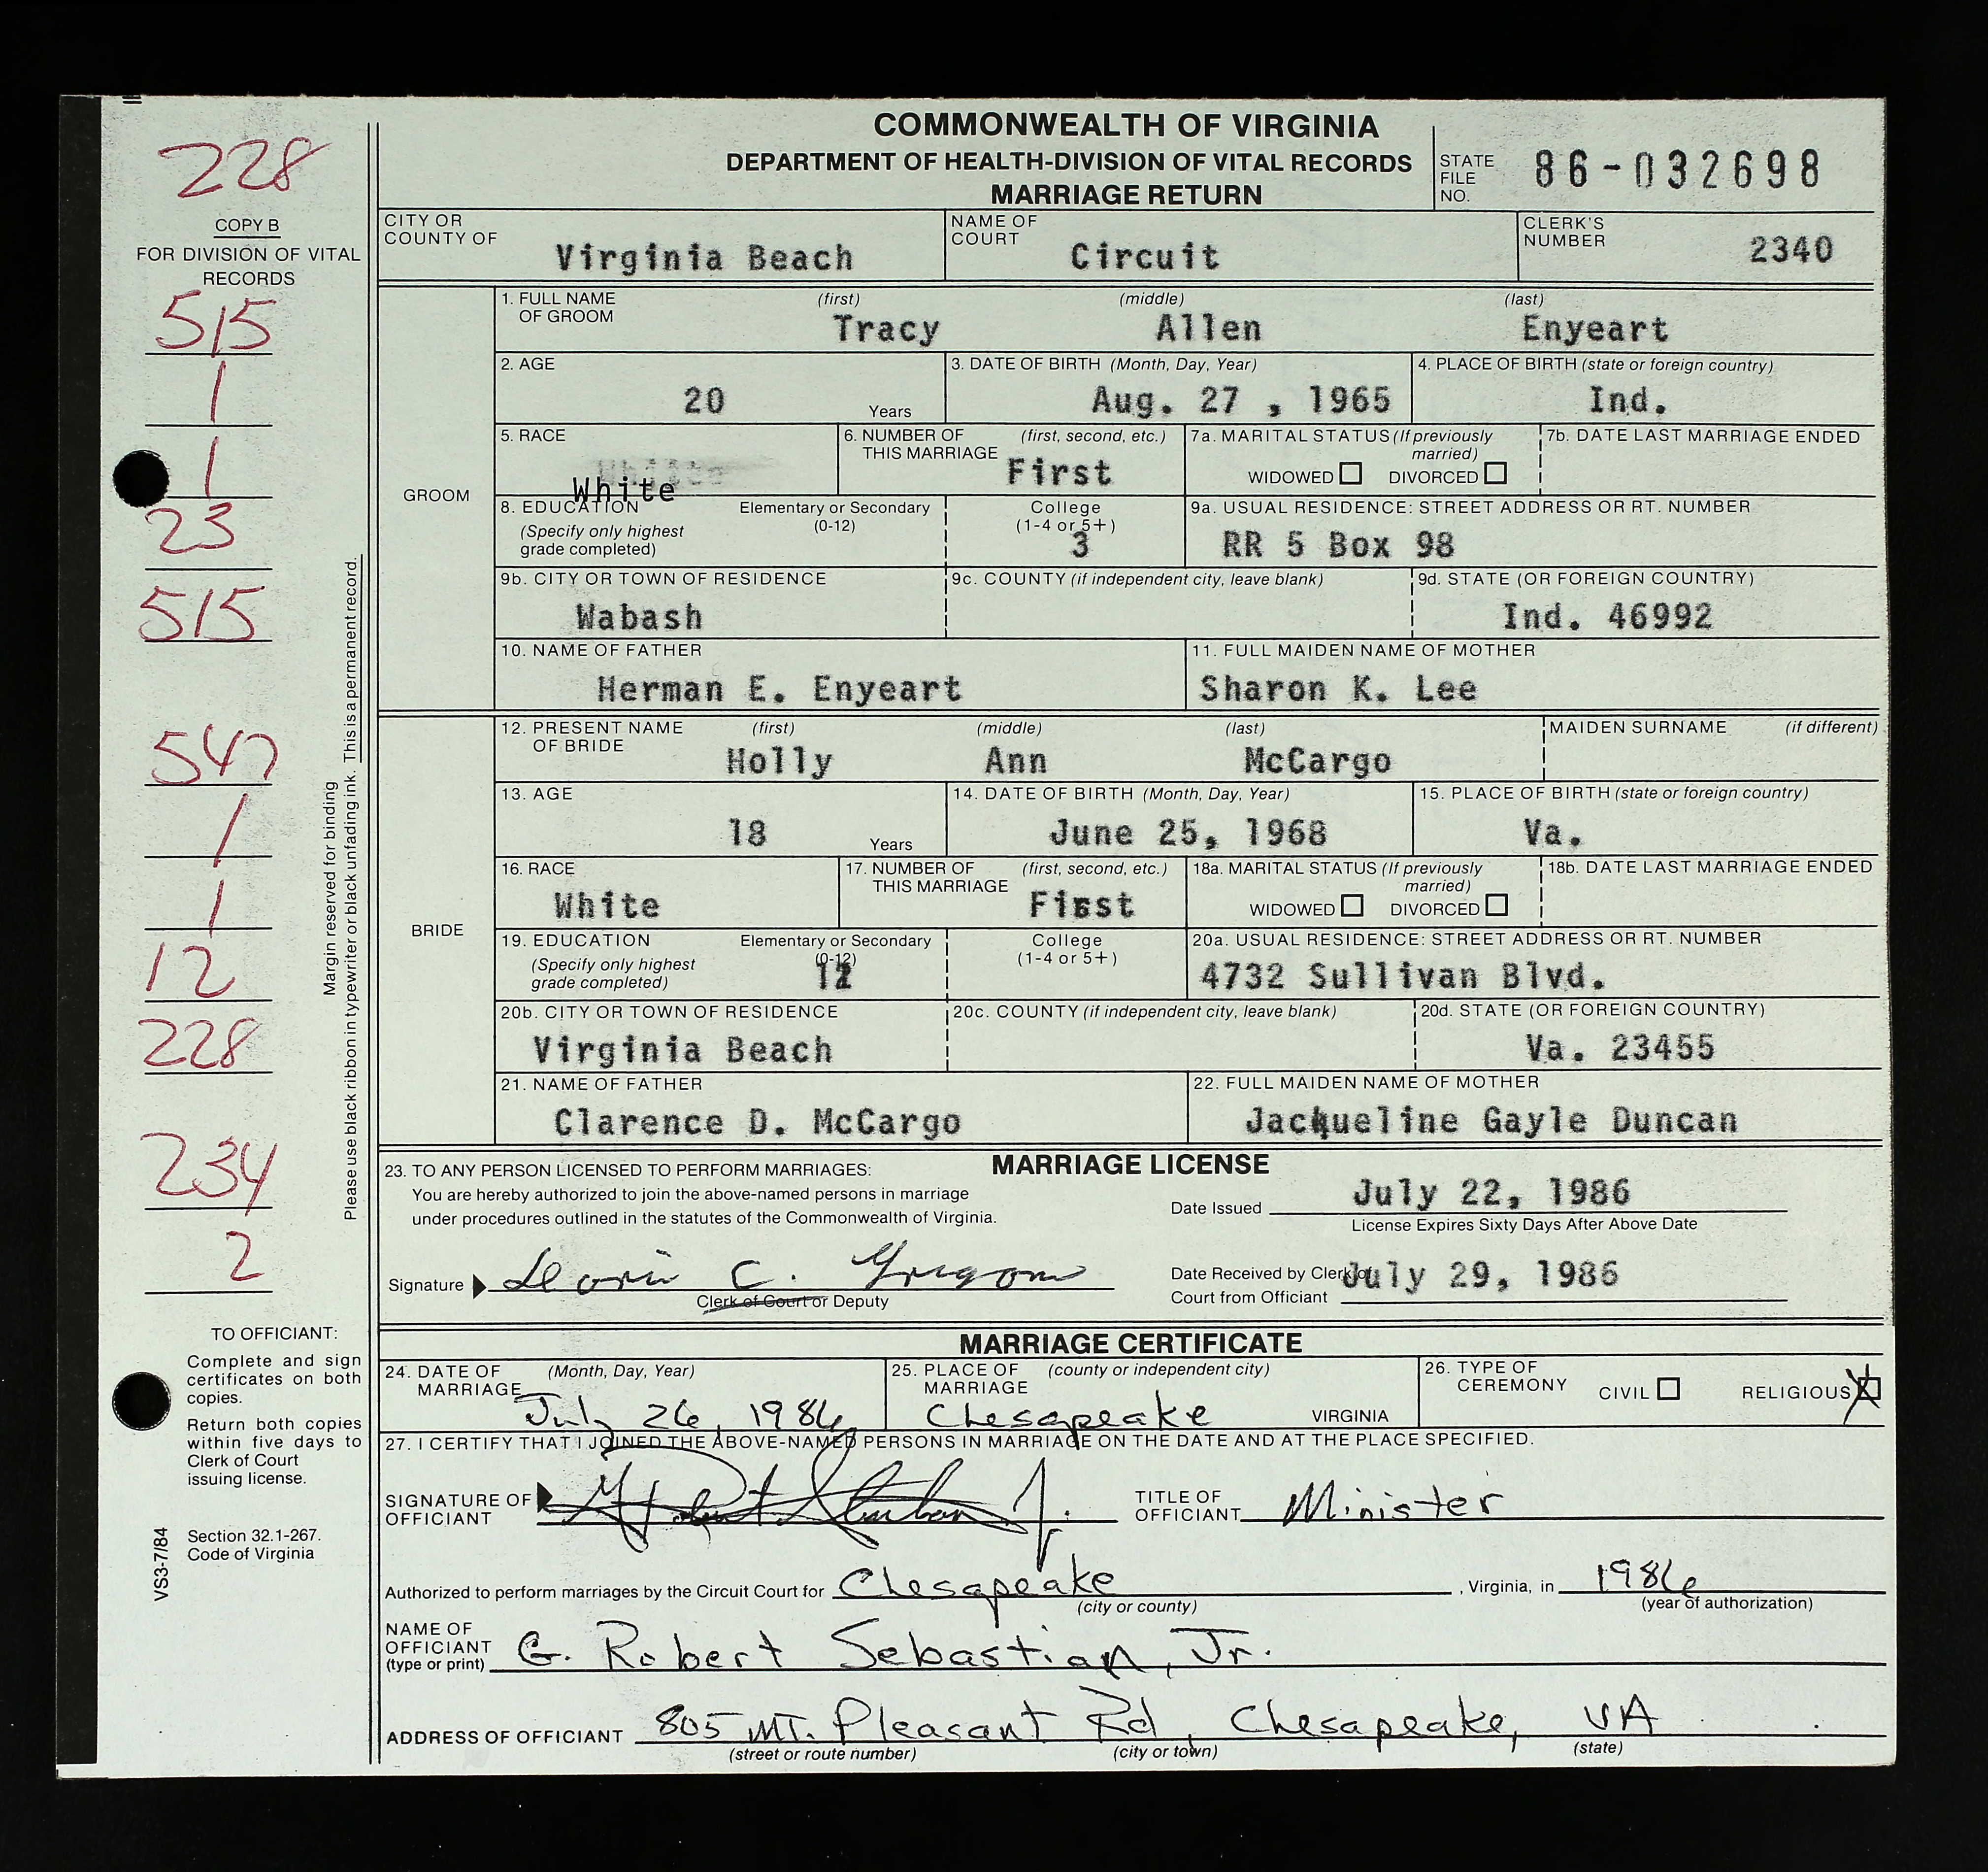 COMMONWEALTH OF VIRGINIA
DEPARTMENT OF HEALTH-DIVISION OF VITAL RECORDS
MARRIAGE RETURN
STATE FILE NO. 86-032698
228
COPY B
FOR DIVISION OF VITAL
RECORDS
515
1
1
23
515
547
1
1
12
228
234
2
Margin reserved for binding
Please use black ribbon in typewriter or black unfading ink. This is a permanent record.
TO OFFICIANT:
Complete and sign
certificates on both
copies.
Return both copies
within five days to
Clerk of Court
issuing license.
Section 32.1-267.
Code of Virginia
VS3-7/84
CITY OR COUNTY OF Virginia Beach
NAME OF COURT Circuit
CLERK'S NUMBER 2340
GROOM
1. FULL NAME OF GROOM (first) Tracy (middle) Allen (last) Enyeart
2. AGE 20 Years
3. DATE OF BIRTH (Month, Day, Year) Aug. 27 , 1965
4. PLACE OF BIRTH (state or foreign country) Ind.
5. RACE White
6. NUMBER OF THIS MARRIAGE (first, second, etc.) First
7a. MARITAL STATUS (If previously married) WIDOWED DIVORCED
7b. DATE LAST MARRIAGE ENDED
8. EDUCATION (Specify only highest grade completed) Elementary or Secondary (0-12) College (1-4 or 5+) 3
9a. USUAL RESIDENCE: STREET ADDRESS OR RT. NUMBER RR 5 Box 98
9b. CITY OR TOWN OF RESIDENCE Wabash
9c. COUNTY (if independent city, leave blank)
9d. STATE (OR FOREIGN COUNTRY) Ind. 46992
10. NAME OF FATHER Herman E. Enyeart
11. FULL MAIDEN NAME OF MOTHER Sharon K. Lee
BRIDE
12. PRESENT NAME OF BRIDE (first) Holly (middle) Ann (last) McCargo
MAIDEN SURNAME (if different)
13. AGE 18 Years
14. DATE OF BIRTH (Month, Day, Year) June 25, 1968
15. PLACE OF BIRTH (state or foreign country) Va.
16. RACE White
17. NUMBER OF THIS MARRIAGE (first, second, etc.) First
18a. MARITAL STATUS (If previously married) WIDOWED DIVORCED
18b. DATE LAST MARRIAGE ENDED
19. EDUCATION (Specify only highest grade completed) Elementary or Secondary (0-12) 12 College (1-4 or 5+)
20a. USUAL RESIDENCE: STREET ADDRESS OR RT. NUMBER 4732 Sullivan Blvd.
20b. CITY OR TOWN OF RESIDENCE Virginia Beach
20c. COUNTY (if independent city, leave blank)
20d. STATE (OR FOREIGN COUNTRY) Va. 23455
21. NAME OF FATHER Clarence D. McCargo
22. FULL MAIDEN NAME OF MOTHER Jacqueline Gayle Duncan
MARRIAGE LICENSE
23. TO ANY PERSON LICENSED TO PERFORM MARRIAGES:
You are hereby authorized to join the above-named persons in marriage
under procedures outlined in the statutes of the Commonwealth of Virginia.
Date Issued July 22, 1986
License Expires Sixty Days After Above Date
Signature C.
Clerk of Court or Deputy
Date Received by Clerk of Court from Officiant July 29, 1986
MARRIAGE CERTIFICATE
24. DATE OF MARRIAGE (Month, Day, Year) July 26, 1986
25. PLACE OF MARRIAGE (county or independent city) Chesapeake VIRGINIA
26. TYPE OF CEREMONY CIVIL RELIGIOUS X
27. I CERTIFY THAT I JOINED THE ABOVE-NAMED PERSONS IN MARRIAGE ON THE DATE AND AT THE PLACE SPECIFIED.
SIGNATURE OF OFFICIANT G. Robert Sebastian Jr.
TITLE OF OFFICIANT Minister
Authorized to perform marriages by the Circuit Court for Chesapeake , Virginia, in 1986
(city or county) (year of authorization)
NAME OF OFFICIANT (type or print) G. Robert Sebastian, Jr.
ADDRESS OF OFFICIANT 805 MT. Pleasant Rd, Chesapeake, VA
(street or route number) (city or town) (state)